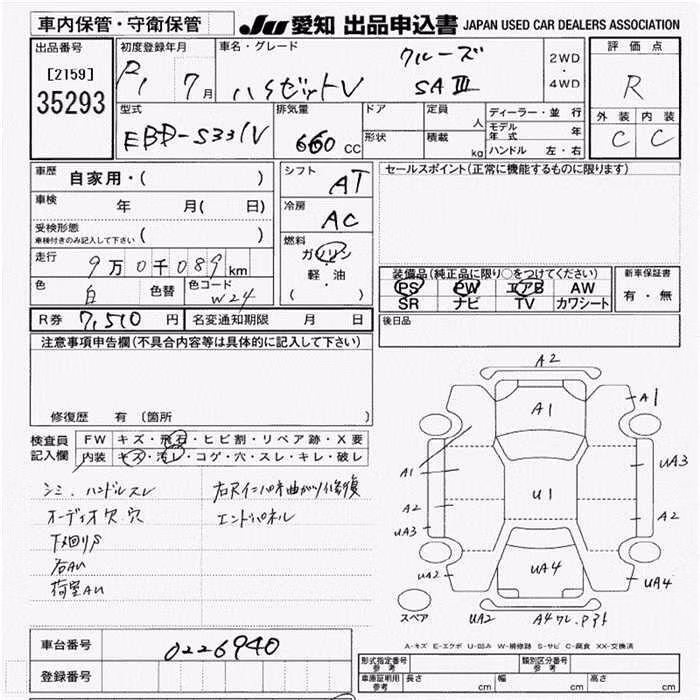 車内保管・守衛保管 JU 愛知 出品申込書 JAPAN USED CAR DEALERS ASSOCIATION
出品番号 初度登録年月 車名・グレード 2WD・4WD 評価点
[2159] R1 7月 ハイゼットV クルーズ SAⅢ R
35293 型式 排気量 ドア 定員 人 ディーラー・並行 外装 内装
EBD-S331V 660 CC 形状 積載 kg モデル年式 年 C C
ハンドル 左・右
車歴 自家用・( ) シフト AT セールスポイント(正常に機能するものに限ります)
車検 年 月( 日) 冷房 AC
受検形態 ( )
車検付きのみ記入して下さい
走行 9万0千089km 燃料 ガソリン・軽・油 ( )
装備品(純正品に限り○をつけてください) 新車保証書
色 白 色替 色コード W24 PS PW エアB AW 有・無
SR ナビ TV カワシート
R券 7,510円 名変通知期限 月 日 後日品
注意事項申告欄(不具合内容等は具体的に記入して下さい)
修復歴 有 〔箇所 〕
検査員記入欄 FW キズ・飛石・ヒビ割・リペア跡・X要
内装 キズ・汚レ・コゲ・穴・スレ・キレ・破レ
シミ、ハンドルスレ
オーディオ欠.穴
下廻りS
右AU
荷室AU
エンドパネル
A2
A1
A1
A1
UA3
U1
A2
A2
UA3
UA2
UA4
UA4
スペア
UA2
A4 ワレ.
A-キズ E-エクボ U-凹み W-補修跡 S-サビ C-腐食 XX-交換済
車台番号 0226940
登録番号
形式指定番号 参考 類別区分番号 参考
車庫証明用 参考 長さ cm 幅 cm 高さ cm